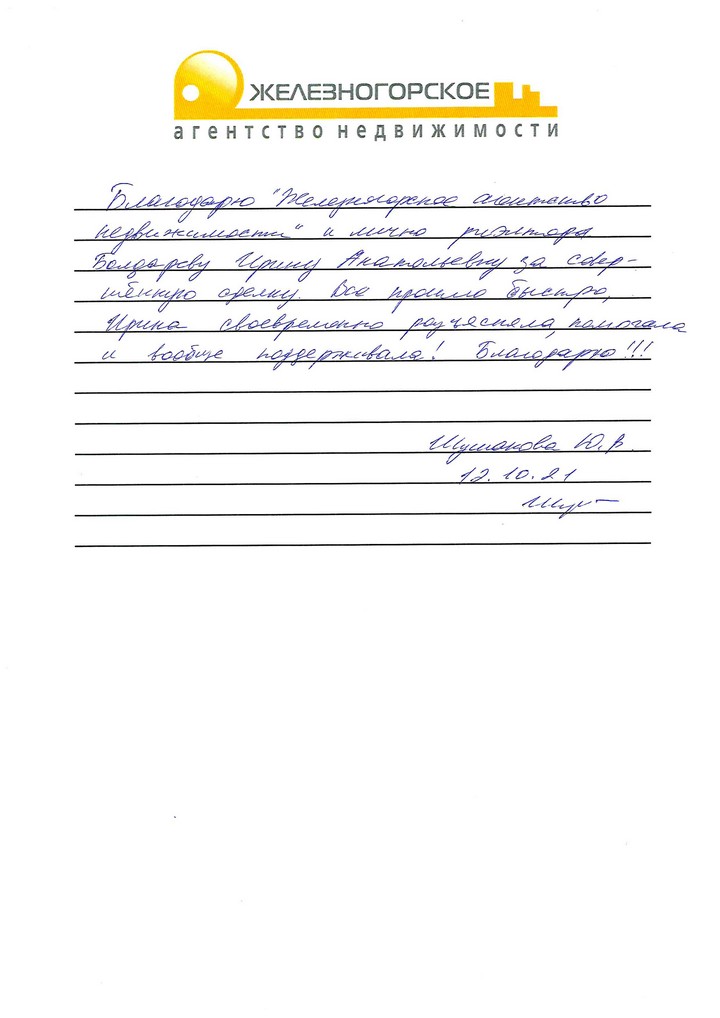 ЖЕЛЕЗНОГОРСКОЕ
агентство недвижимости
Благодарю "Железногорское агентство
недвижимости" и лично риэлтора
Болдыреву Ирину Анатольевну за совер-
шённую сделку. Все прошло быстро,
Ирина своевременно разъясняла, помогала
и вообще поддерживала! Благодарю!!!
Шушакова Ю.В.
12.10.21